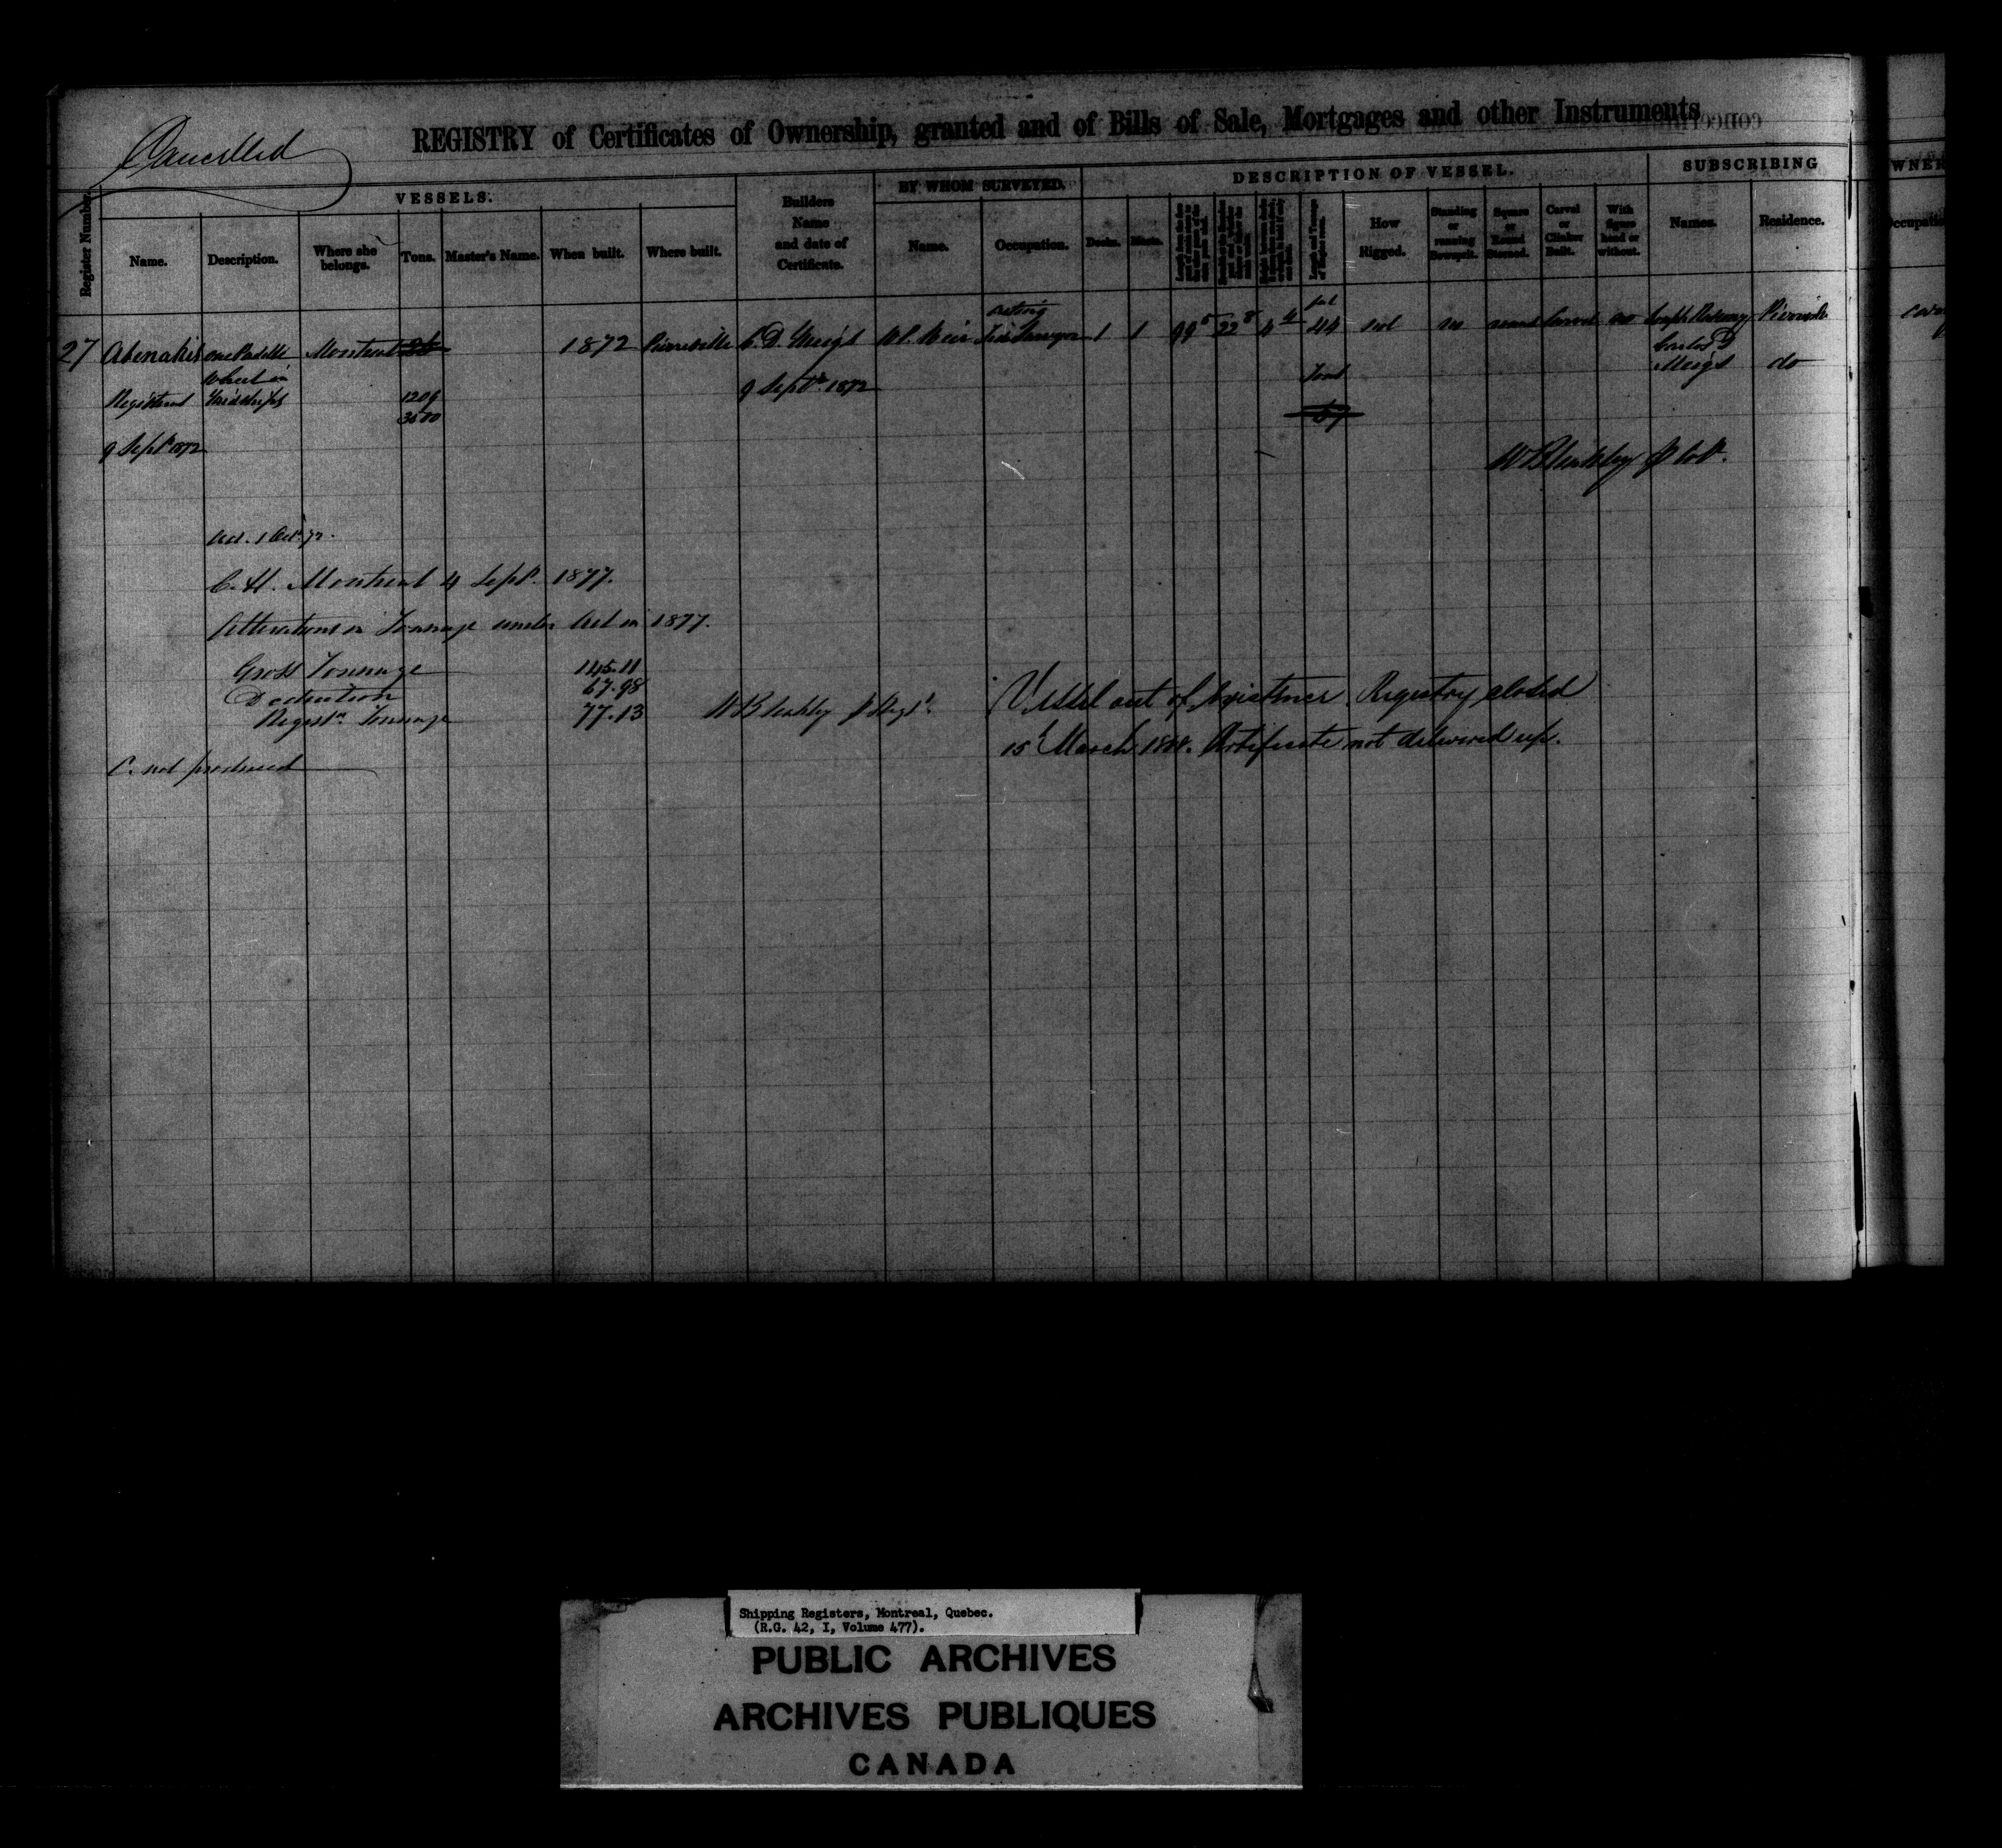 Cancelled
REGISTRY of Certificates of Ownership, granted and of Bills of Sale, Mortgages and other Instruments
VESSELS.
Builders Name and date of Certificate.
BY WHOM SURVEYED.
DESCRIPTION OF VESSEL.
SUBSCRIBING
OWNER
Register Number.
Name.
Description.
Where she belongs.
Tons.
Master's Name.
When built.
Where built.
Name.
Occupation.
Decks.
Masts.
How Rigged.
Standing or running Bowsprit.
Square or Round Sterned.
Carvel or Clinker Built.
With figure head or without.
Names.
Residence.
Occupatio
27 Abenakis one Paddle Montreal 1872 Pierreville C. D. Meigs W. Weir acting 1 1 99 5 22 8 4 4 44 no round Carvel no Joseph
Wheel in
Midships
Registered
1209
3500
9 Sept. 1872
9 Sept. 1872
feet
Tons
Meigs do
W Bleakley
Act. 1 Oct. 72.
C. H. Montreal 4 Sept. 1877.
Alterations in Tonnage under Act in 1877.
Gross Tonnage 145.11
Deduction 67.98
Regist. Tonnage 77.13
W Bleakley
Vessel out of existence. Registry closed
15 March 1888. Certificate not delivered up.
C. not produced
Shipping Registers, Montreal, Quebec.
(R.G. 42, I, Volume 477).
PUBLIC ARCHIVES
ARCHIVES PUBLIQUES
CANADA